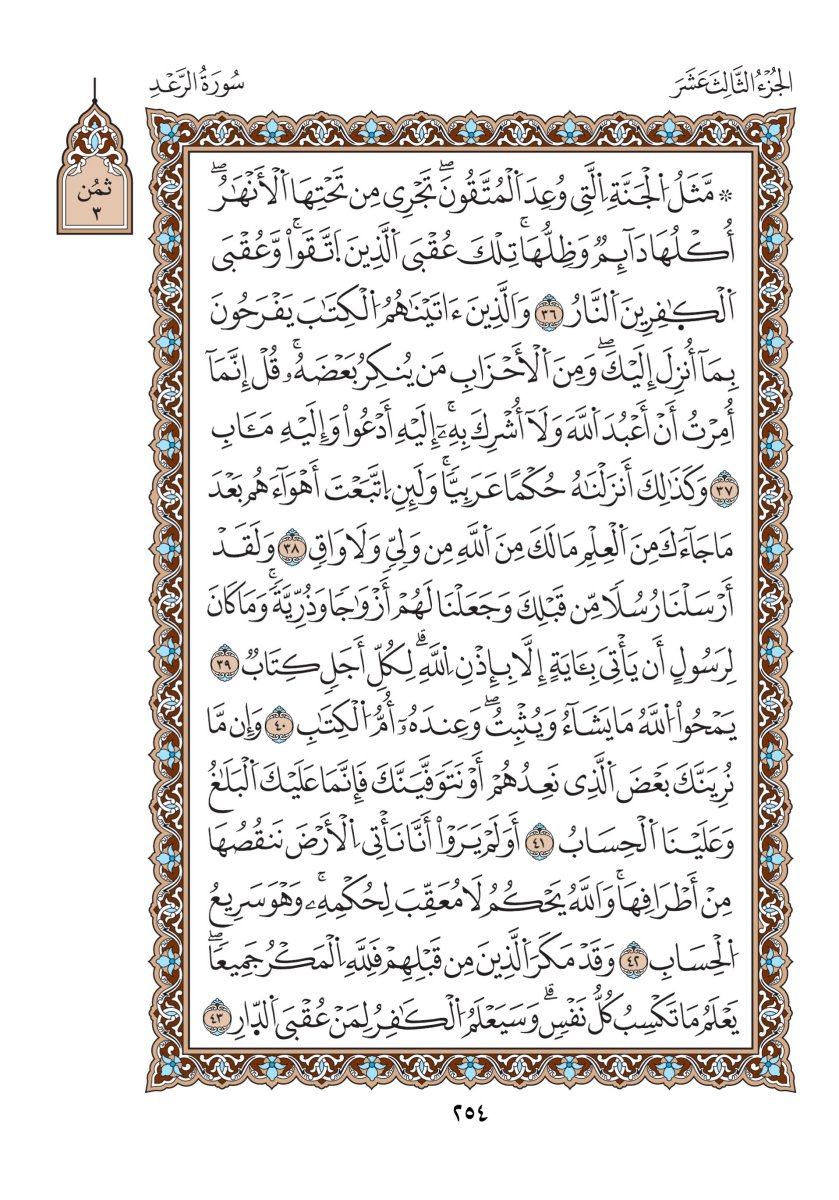 الجُزْءُ الثَّالِثَ عَشَرَ
سُورَةُ الرَّعْدِ
ثُمُن
٣
۞ مَّثَلُ اُ۬لْجَنَّةِ اِ۬لتِے وُعِدَ اَ۬لْمُتَّقُونَۖ تَجْرِي مِن تَحْتِهَا اَ۬لْأَنْهَٰرُۖ
أُكُلُهَا دَآئِمٞ وَظِلُّهَاۚ تِلْكَ عُقْبَى اَ۬لذِينَ اَ۪تَّقَواْۚ وَّعُقْبَى
اَ۬لْكٰ۪فِرِينَ اَ۬لنَّارُ ٣٦ وَالذِينَ ءَاتَيْنَٰهُمُ اُ۬لْكِتَٰبَ يَفْرَحُونَ
بِمَآ أُنزِلَ إِلَيْكَۖ وَمِنَ اَ۬لْأَحْزَابِ مَن يُنكِرُ بَعْضَهُۥۚ قُلْ إِنَّمَآ
أُمِرْتُ أَنْ أَعْبُدَ اَ۬للَّهَ وَلَآ أُشْرِكَ بِهِۦٓۚ إِلَيْهِ أَدْعُواْ وَإِلَيْهِ مَـَٔابِ
٣٧ وَكَذَٰلِكَ أَنزَلْنَٰهُ حُكْماً عَرَبِيّاۚٗ وَلَئِنِ اِ۪تَّبَعْتَ أَهْوَآءَهُم بَعْدَ
مَا جَآءَكَ مِنَ اَ۬لْعِلْمِ مَا لَكَ مِنَ اَ۬للَّهِ مِن وَلِيّٖ وَلَا وَاقٖ ٣٨ وَلَقَدْ
أَرْسَلْنَا رُسُلاٗ مِّن قَبْلِكَ وَجَعَلْنَا لَهُمْ أَزْوَٰجاٗ وَذُرِّيَّةٗۚ وَمَا كَانَ
لِرَسُولٍ أَن يَأْتِيَ بِـَٔايَةٍ إِلَّا بِإِذْنِ اِ۬للَّهِۗ لِكُلِّ أَجَلٖ كِتَابٞ ٣٩
يَمْحُواْ اُ۬للَّهُ مَا يَشَآءُ وَيُثْبِتُۖ وَعِندَهُۥٓ أُمُّ اُ۬لْكِتَٰبِ ٤٠ وَإِن مَّا
نُرِيَنَّكَ بَعْضَ اَ۬لذِي نَعِدُهُمْ أَوْ نَتَوَفَّيَنَّكَ فَإِنَّمَا عَلَيْكَ اَ۬لْبَلَٰغُ
وَعَلَيْنَا اَ۬لْحِسَابُ ٤١ أَوَلَمْ يَرَوْاْ أَنَّا نَأْتِي اِ۬لْأَرْضَ نَنقُصُهَا
مِنْ أَطْرَافِهَاۚ وَاللَّهُ يَحْكُمُ لَا مُعَقِّبَ لِحُكْمِهِۦۚ وَهْوَ سَرِيعُ
اُ۬لْحِسَابِ ٤٢ وَقَدْ مَكَرَ اَ۬لذِينَ مِن قَبْلِهِمْ فَلِلَّهِ اِ۬لْمَكْرُ جَمِيعاٗۖ
يَعْلَمُ مَا تَكْسِبُ كُلُّ نَفْسٖۗ وَسَيَعْلَمُ اُ۬لْكَٰفِرُ لِمَنْ عُقْبَى اَ۬لدّ۪ارِ ٤٣
٢٥٤